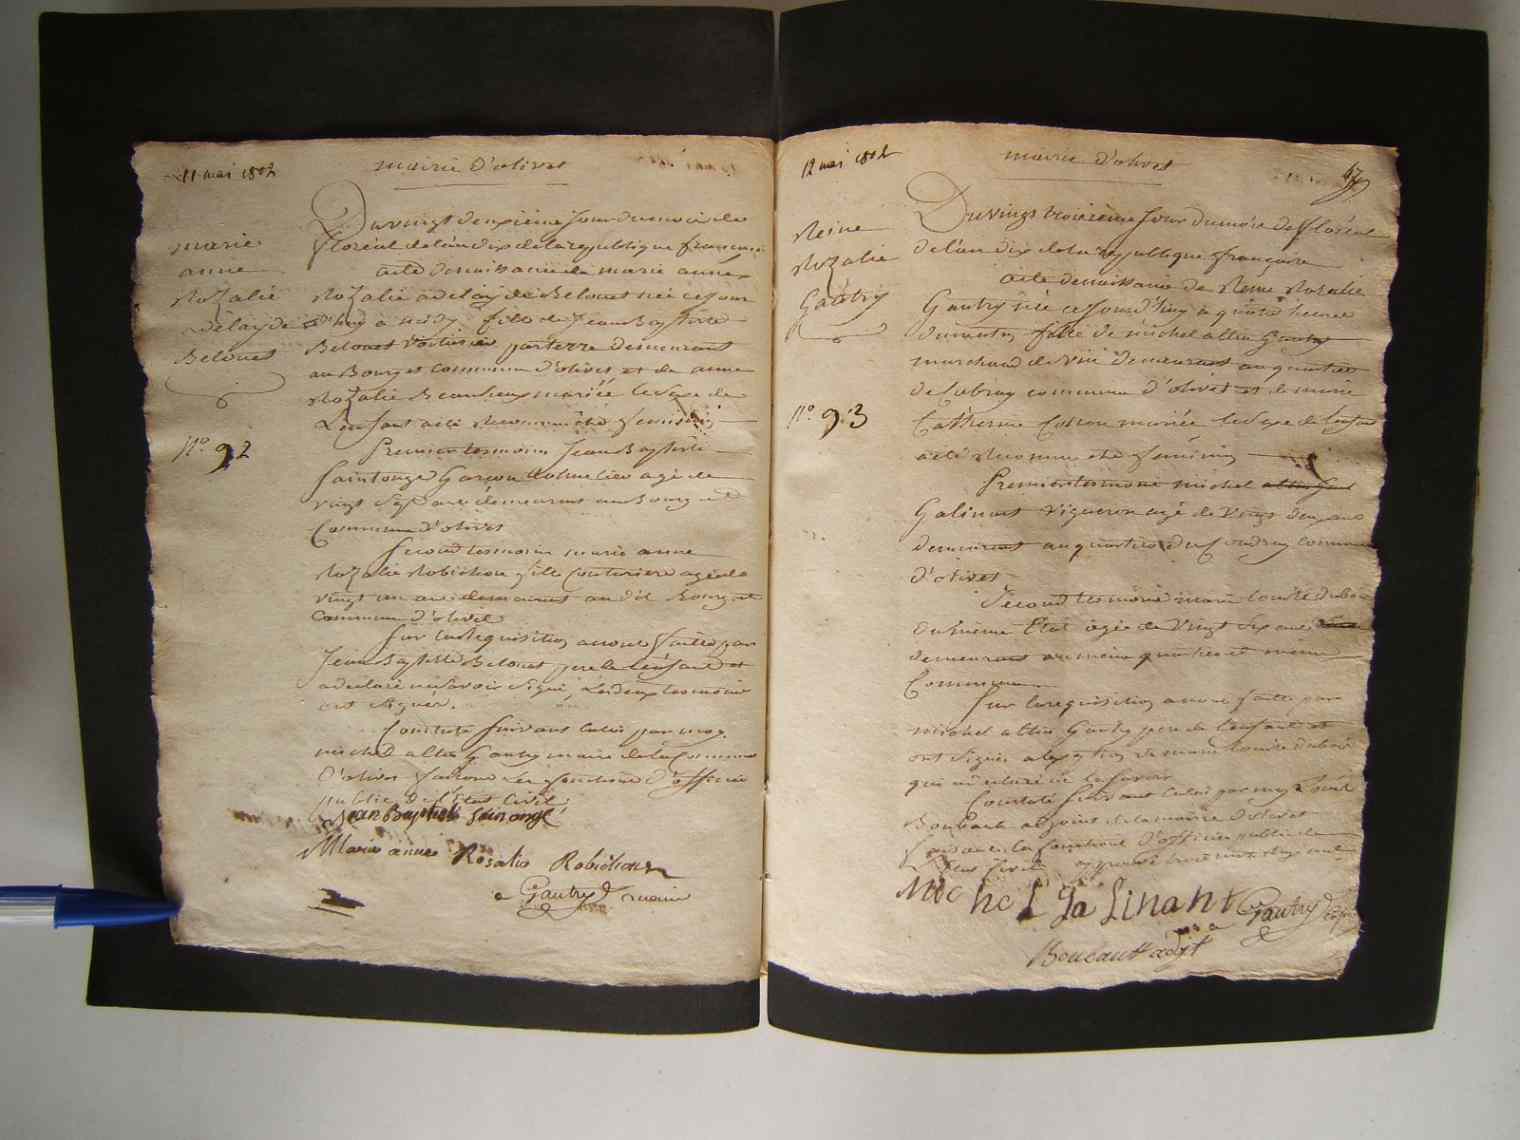 11 mai 1802
mairie d'olivet
marie
anne
Rozalie
adelayde
Belouet
N.º 92
Du vingt deuxième Jour du mois de
floreal de l'an dix de la republique françoise
acte de naissance de marie anne
Rozalie adelayde Belouet née ce jour
d'huy à midy fille de Jean Baptiste
Belouet voiturier par terre demeurant
au Bourg et commune d'olivet et de anne
Rozalie mariée le sexe de
L'enfant a été Reconnu être feminin
Premier tesmoin Jean Baptiste
Saintonge Garçon agé de
vingt Sept ans demeurant au Bourg et
Commune d'olivet
Second tesmoin marie anne
Rozalie Robichon fille Couturiere agée de
vingt un ans demeurant au dit Bourg et
commune d'olivet
Sur la requisition a nous faitte par
Jean Baptiste Belouet pere de l'enfant et
a declaré ne savoir Signé, Les deux tesmoins
ont Signé.
Constaté Suivant la loi par moy
michel Gautry maire de la Commune
D'olivet faisant les fonctions d'officier
public de l'Etat Civil.
Jean Baptiste Sainonge
Marie annee Rosalie Robichon
Gautry maire
12 mai 1802
mairie d'olivet
47
Reine
Rozalie
Gautry
N.º 93
Du vingt troisième Jour du mois de floréal
de l'an dix de la republique françoise
acte de naissance de Reine Rosalie
Gautry née ce Jourd'huy à heures
du matin fille de michel Gautry
marchand de vin demeurant au quartier
de commune d'olivet et de marie
Catherine mariée le Sexe de l'enfant
a été Reconnu être féminin
Premier tesmoin michel
Galinant vigneron agé de vingt deux ans
demeurant au quartier du commune
d'olivet
Second tesmoin marie Louise dubois
du même Etat agée de vingt six ans
demeurant au même quartier et même
Commune
Sur la requisition a nous faitte par
michel Gautry pere de l'enfant et
ont Signé a l'exeption de marie Louise dubois
qui a déclaré ne le savoir
Constaté Suivant la loi par moy
Boucault adjoint de la mairie d'olivet
faisant les fonctions d'officier public de
l'Etat Civil approuvé trois mots rayé nul
Michel Galinant Gautry
Boucault adjt